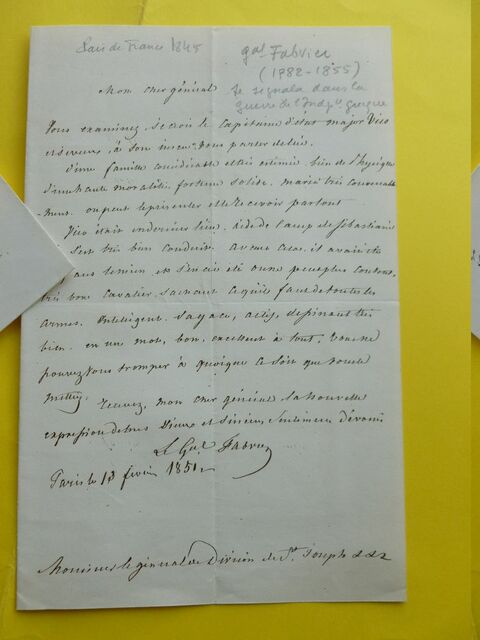 Pair de France 1845
gal Fabvier
(1782-1855)
se signala dans la
guerre de l'Indpce grecque
Mon cher général
Vous examinez, je crois le Capitaine d'état major Vico
à son insçu vous parler de lui.
D'une famille considérable et très estimée, bien de Physique
d'une haute moralité, fortune solide. marié très convenable
-ment. on peut le présenter et le recevoir partout
Vico était en dernier lieu, aide de camp de Sébastiani
s'est très bien conduit. avec il avait été
ans lancier et s'en est
très bon cavalier, sachant ce qu'il faut de toutes les
armes. Intelligent. sagace, actif, dessinant très
bien. en un mot, bon, excellent à tout. vous ne
pouvez vous tromper à quoique ce soit que vous le
mettiez.
Recevez, mon cher général, la nouvelle
expression de mes et sincères sentimens dévoués
Le Gal Fabvier
Paris le 13 févier 1851
Monsieur le général de Division de St. Joseph &&&